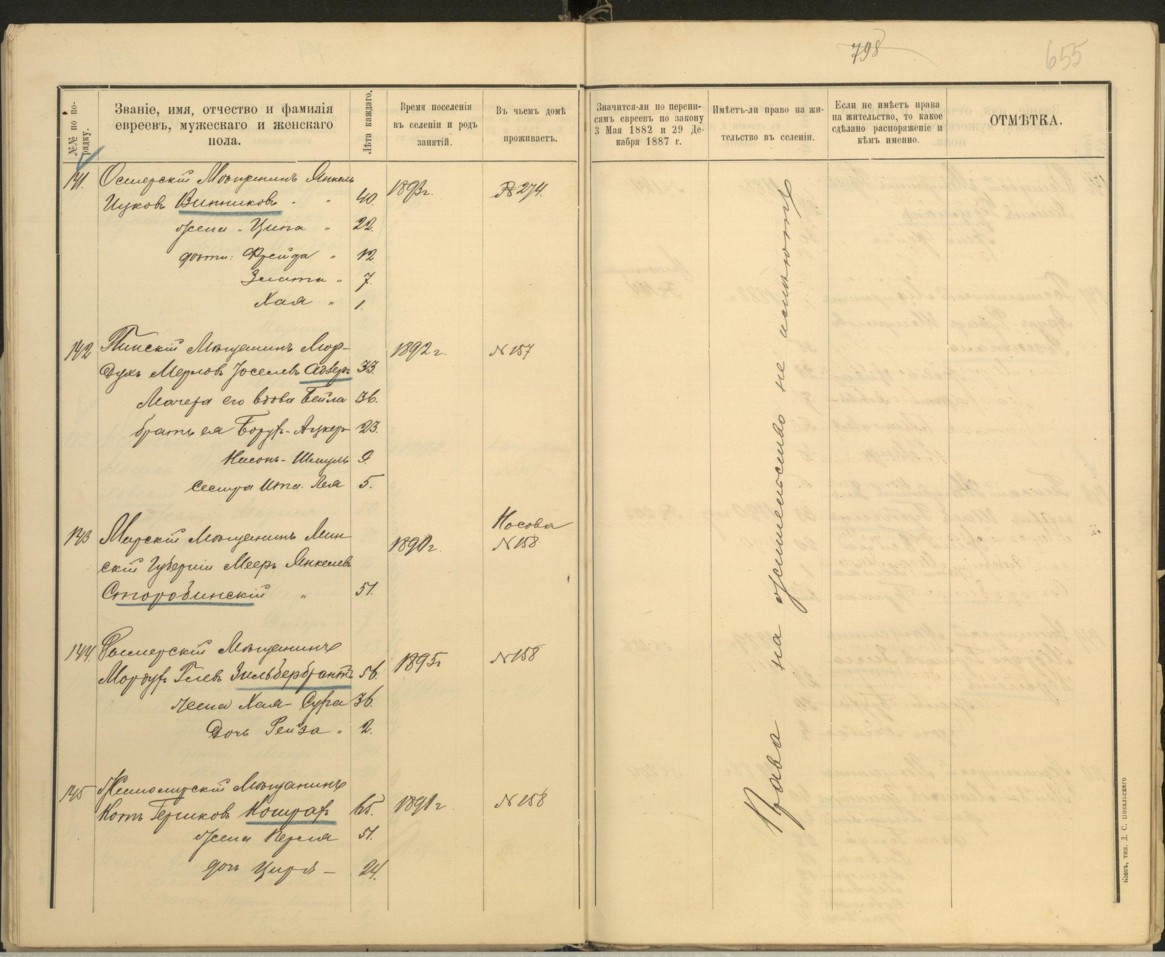 798
655
№№ по по-
рядку.
Званіе, имя, отчество и фамилія
евреевъ, мужескаго и женскаго
пола.
Лѣта каждаго.
Время поселенія
въ селеніи и родъ
занятій.
Въ чьемъ домѣ
проживаетъ.
Значится-ли по перепи-
сямъ евреевъ по закону
3 Мая 1882 и 29 Де-
кабря 1887 г.
Имѣетъ-ли право на жи-
тельство въ селеніи.
Если не имѣетъ права
на жительство, то какое
сдѣлано распоряженіе и
кѣмъ именно.
ОТМѢТКА.
141. Остерскій Мѣщанинъ Янкель 1893 г. № 274
Ицковъ Винниковъ " " 40.
жена - Ципа " 22.
дочти: Фрейда " 12
Злата " 7.
Хая " 1
142 Пинскій Мѣщанинъ Мор- 1892 г. № 157
духъ Меровъ Іоселевъ 33.
Мачеха его вдова Бейла 36.
братья Борух- 23.
Нисонъ-Шмуль 9.
Сестра Ита-Лея 5.
Носова
143 Мѣщанинъ Мин- 1890 г. № 158
скій Губерніи Мееръ Янкелевъ
Старобинскій " 51.
144. Мѣщанинъ 1895 г № 158
Мордух Зильбербрантъ 56.
жена Хая-Сура 36.
Дочь Рейза " 2.
145 Житомирскій Мѣщанинъ
Гершковъ 65. 1891 г № 158
Жена Перля 51.
дочь 24.
Права на жительство не имѣютъ
Кіевъ, тип. Д. С. Повальскаго